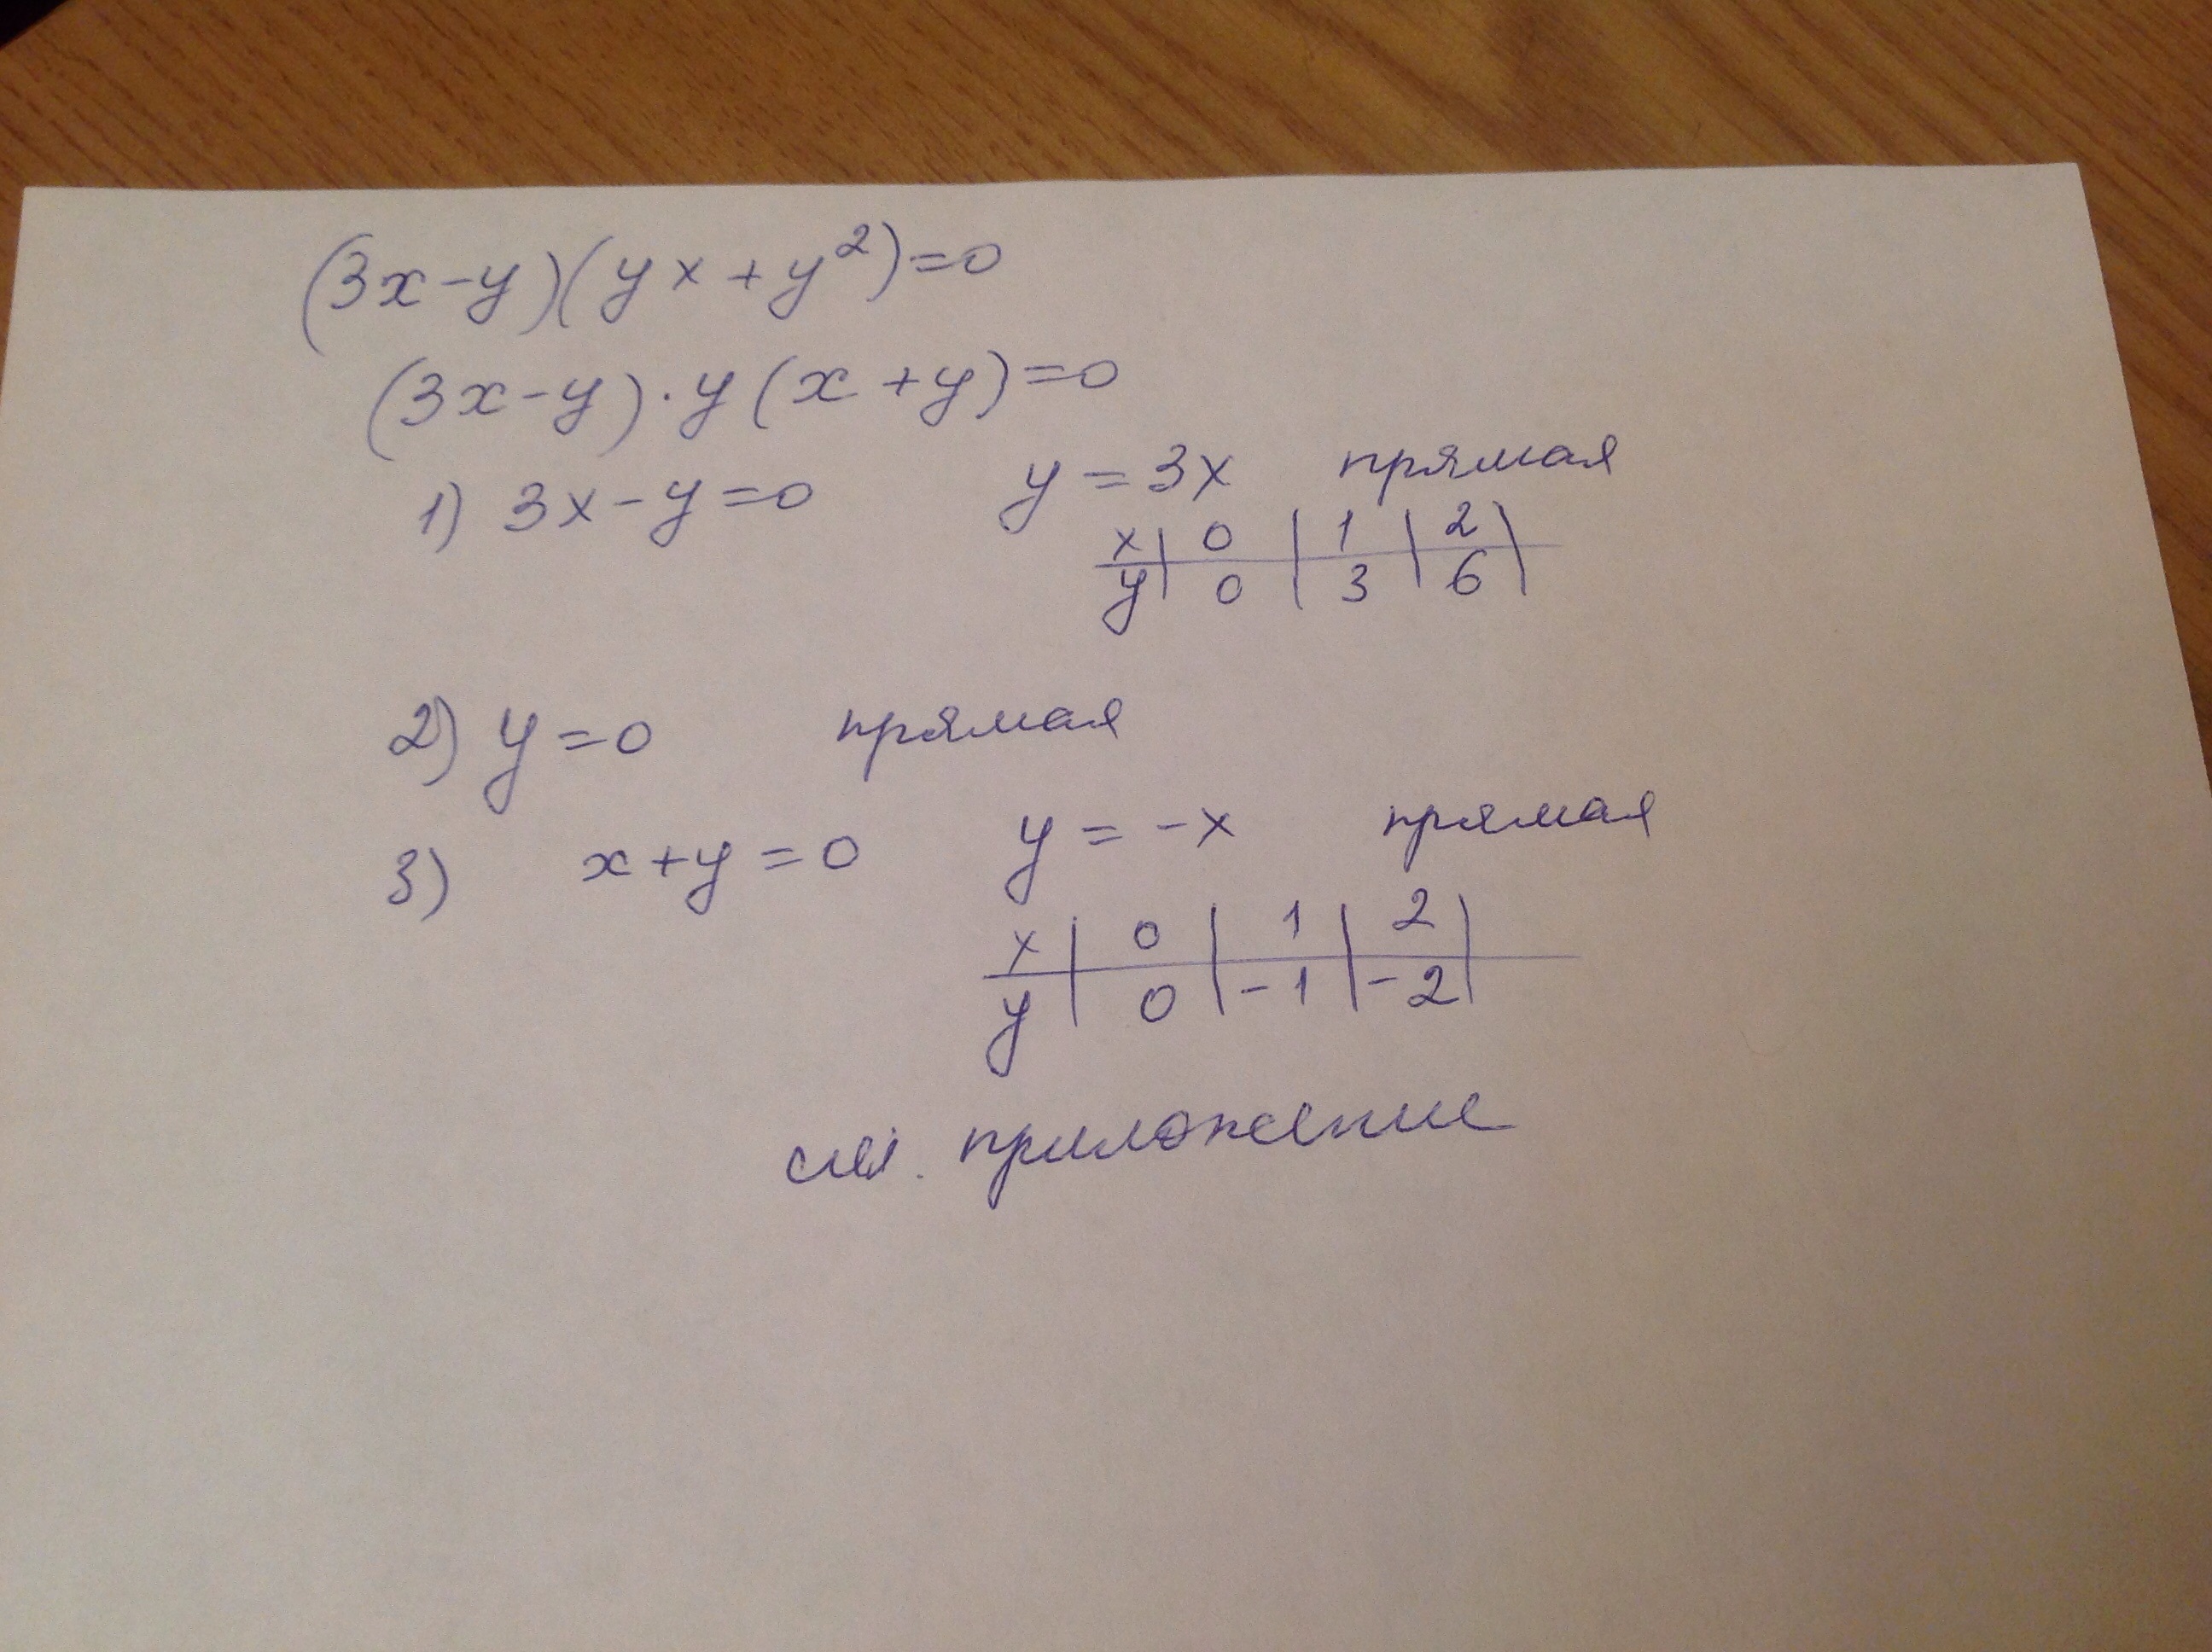 (3x-y)(yx+y²)=0
(3x-y)·y(x+y)=0
1) 3x-y=0 y=3x прямая
x | 0 | 1 | 2 |
y | 0 | 3 | 6 |
2) y=0 прямая
3) x+y=0 y=-x прямая
x | 0 | 1 | 2 |
y | 0 | -1 | -2 |
см. приложение